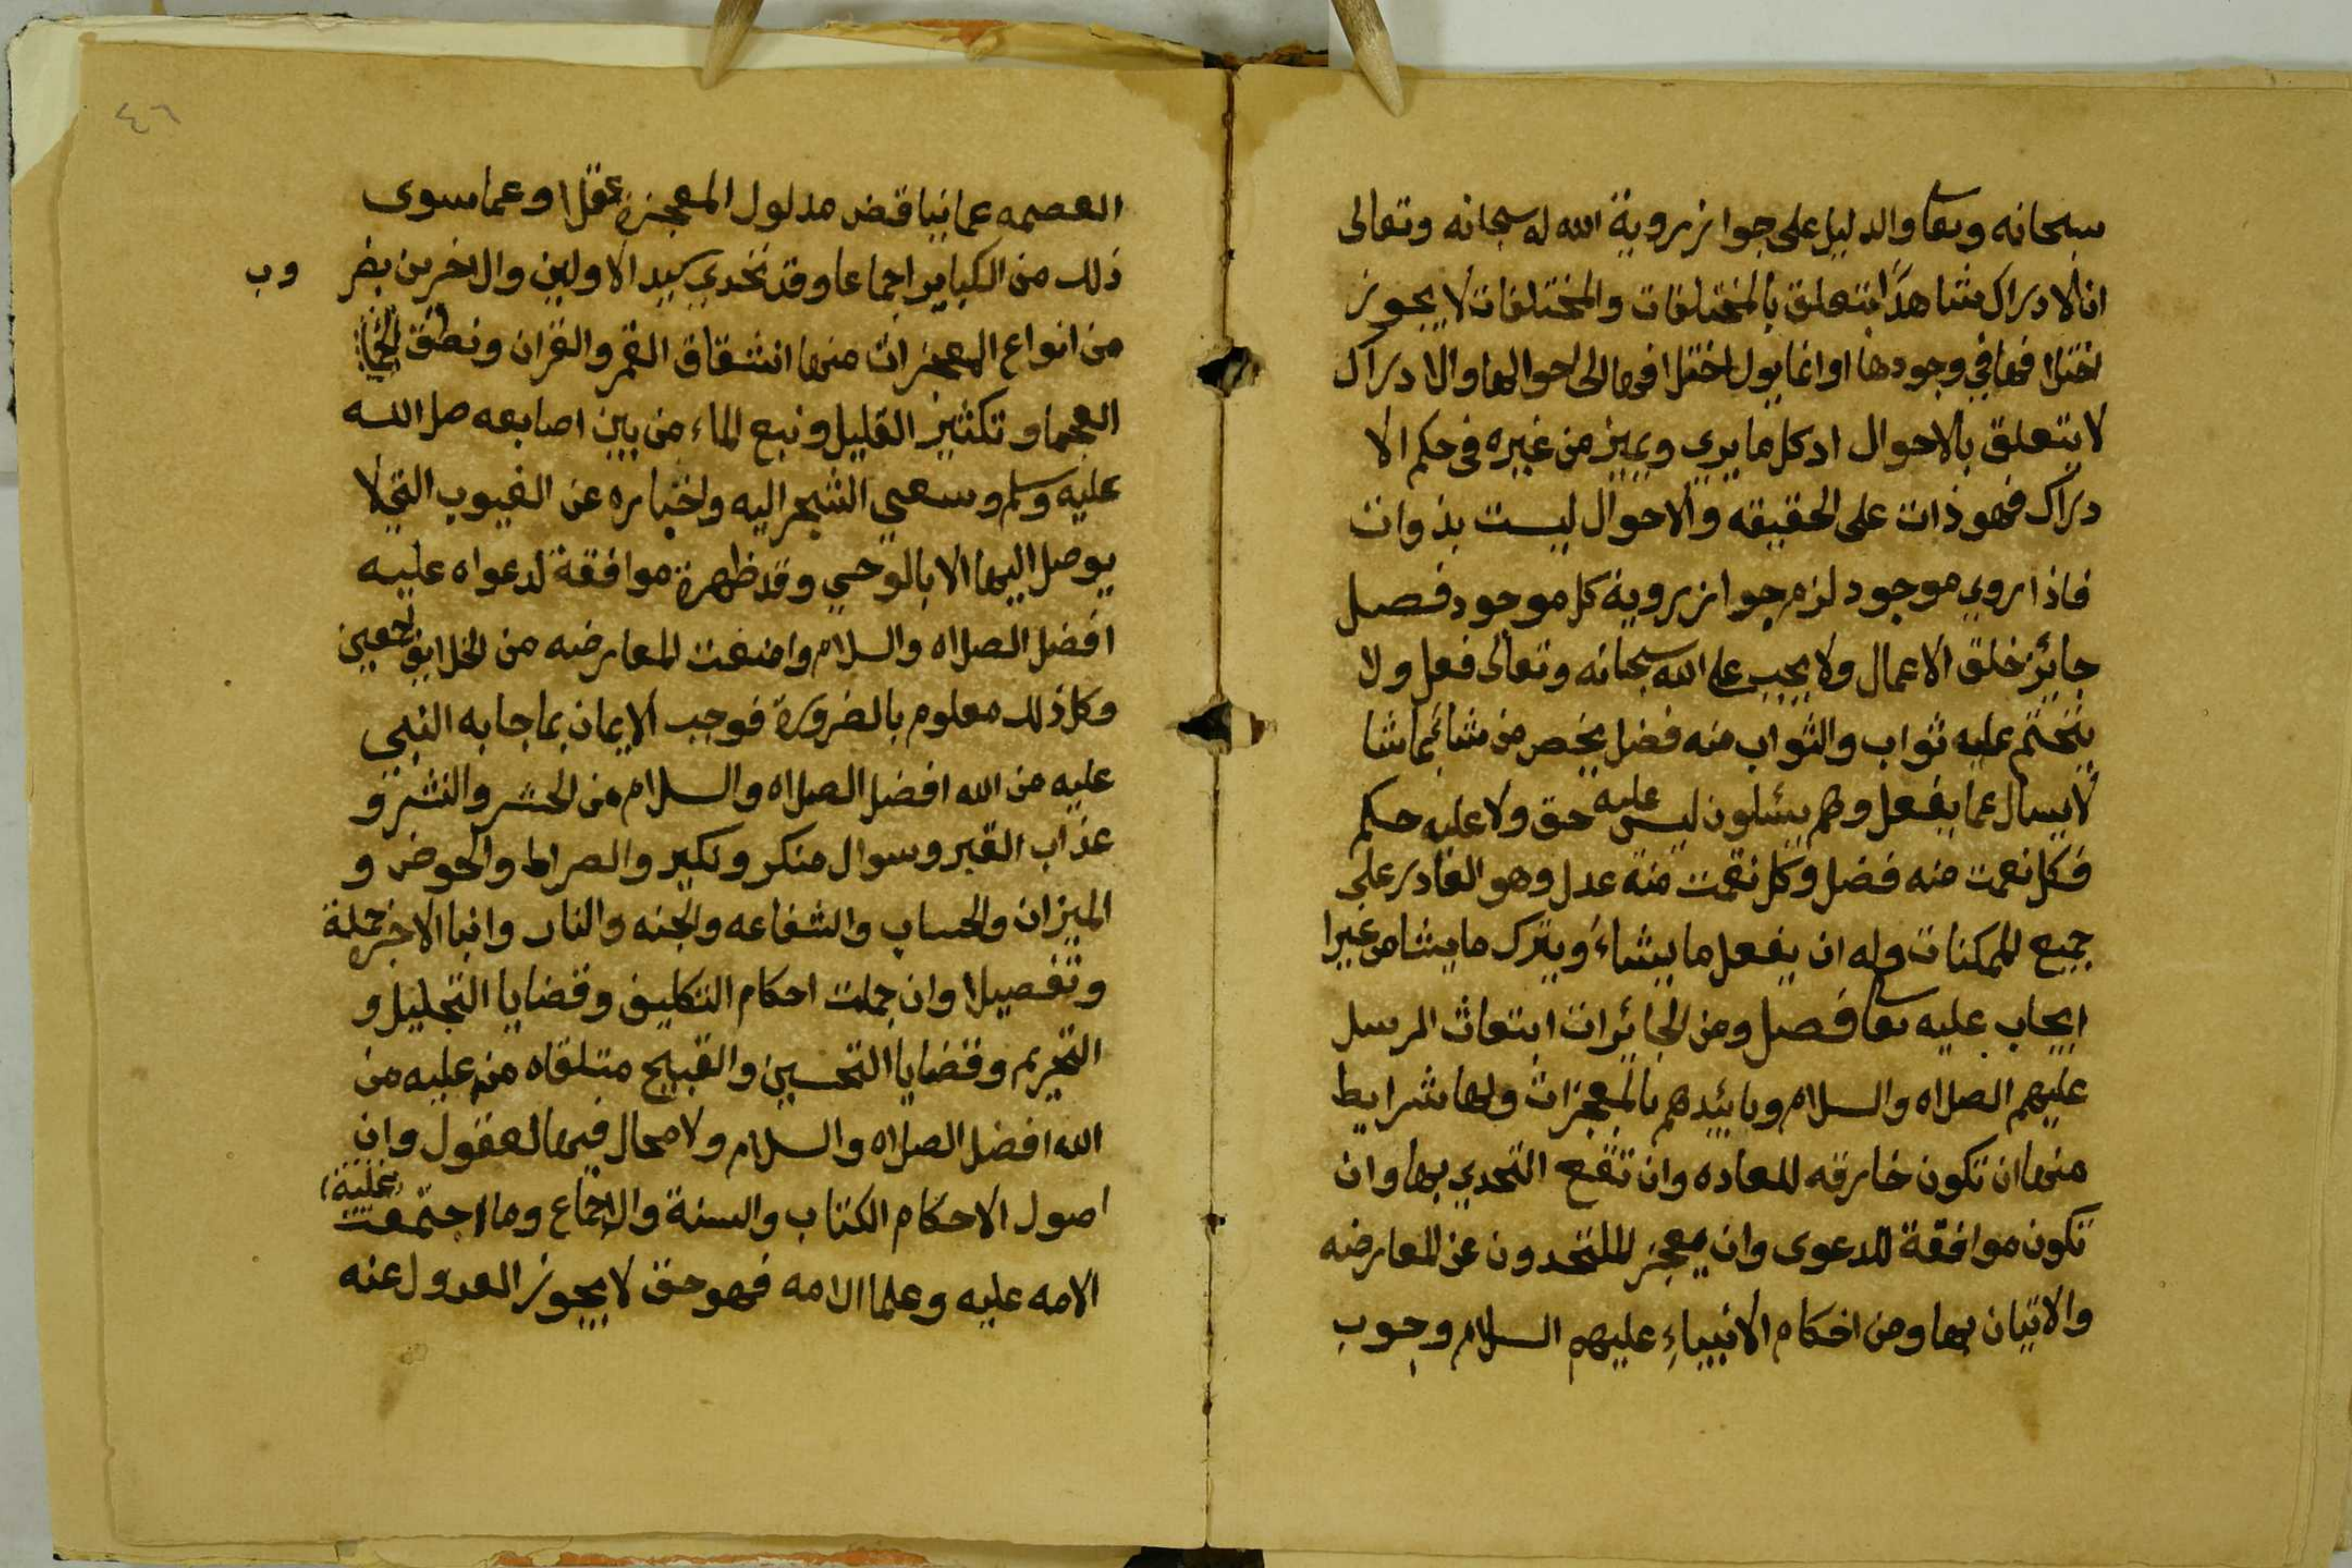 سبحانه وتعا والدليل على جواز روية الله له سبحانه وتعالى
ان الادراك شاهدًا يتعلق بالمختلفات والمختلفات لا يجوز
اختلافها في وجودها او انما يول اختلافها الى احوالها والادراك
لا يتعلق بالاحوال اد كل ما يرى ويميز من غيره في حكم الا
دراك فهو ذات على الحقيقه والاحوال ليست بذوات
فاذا روي موجود لزم جواز روية كل موجود فصل
جايز خلق الاعمال ولا يجب على الله سبحانه وتعالى فعل ولا
يتحتم عليه ثواب والثواب منه فضل يخص من شا بما شا
لا يسال عما يفعل وهم يسئلون ليس عليه حق ولا عليه حكم
فكل نعمت منه فضل وكل نقمت منه عدل وهو القادر على
جميع الممكنات وله ان يفعل ما يشاء ويترك ما يشا من غير ا
ايجاب عليه تعا فصل ومن الجائزات ابتعاث الرسل
عليهم الصلاه والسلام وبائيدهم بالمعجزات ولها شرايط
منها ان تكون خارقه للعاده وان تقع التحدي بها وان
تكون موافقة للدعوى وان يعجز المتحدون عن المعارضه
والاتيان بها ومن احكام الانبياء عليهم السلام وجوب
٤٦
العصمه عما يناقض مدلول المعجزة عقلا وعما سوى
ذلك من الكباير اجماعا وقد تحدي سيد الاولين والاخرين بضر
وب
من انواع المعجزات منها انشقاق القمر والقران ونطق
العجما وتكثير القليل ونبع الماء من بين اصابعه صل الله
عليه وسلم وسعي الشجر اليه واخباره عن الغيوب التي لا
يوصل اليها الا بالوحي وقد ظهرة موافقة لدعواه عليه
افضل الصلاه والسلام وامنعت المعارضه من الخلايق اجمعين
وكل ذلك معلوم بالضرورة فوجب الايمان بما جا به النبي
عليه من الله افضل الصلاه والسلام من الحشر والنشر و
عذاب القبر وسوال منكر ونكير والصراط والحوض و
الميزان والحساب والشفاعه والجنه والنار وانبا الاخرة جملة
وتفصيلا وان جملت احكام التكليف وقضايا التحليل و
التحريم وقضايا التحسين والقبيح متلقاه منه عليه من
الله افضل الصلاه والسلام ولا مجال فيها لعقول وان
اصول الاحكام الكتاب والسنة والاجماع وما اجتمعت عليه
الامه عليه وعلما الامه فهو حق لا يجوز العدول عنه